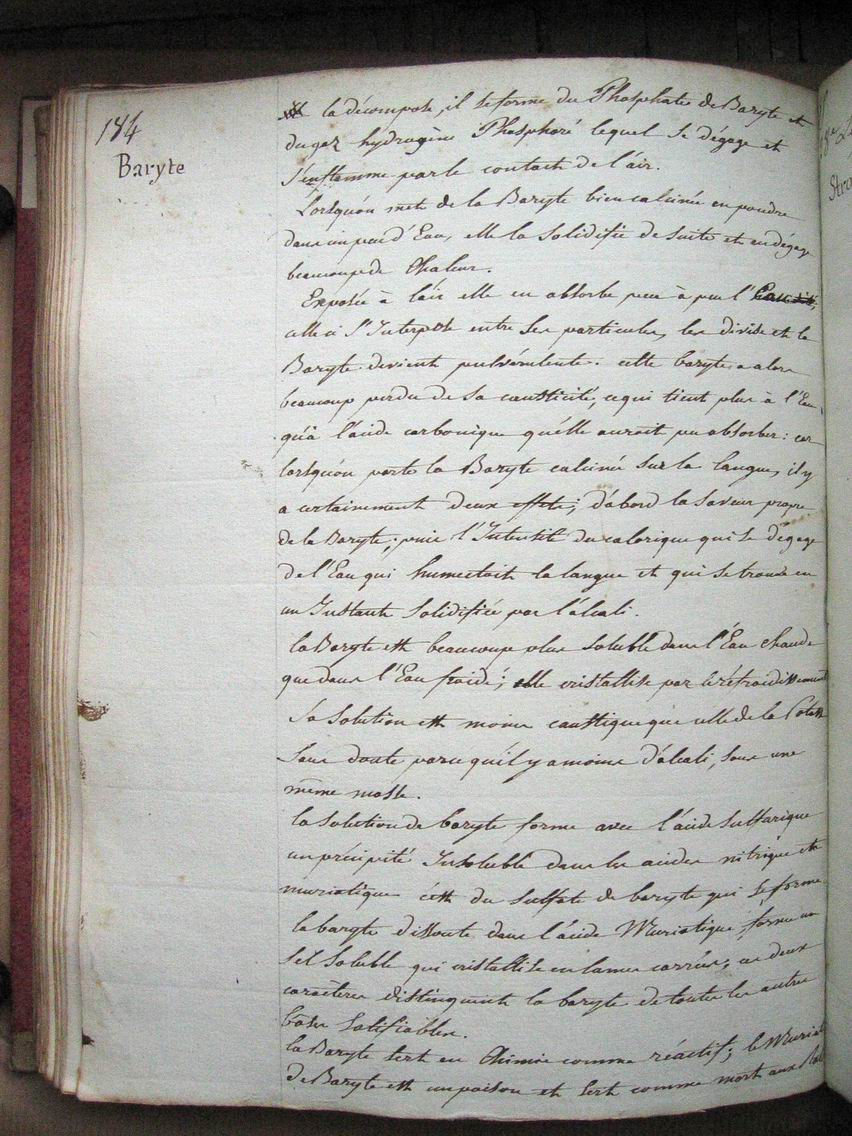 184
Baryte
la décompose, il se forme du Phosphate de Baryte et
du gaz hydrogène Phosphoré lequel se dégage et
s'enflamme par le contact de l'air.
Lorsqu'on met de la Baryte bien calcinée en poudre
dans un peu d'Eau, elle la solidifie de suite et en dégage
beaucoup de Chaleur.
Exposée à l'air elle en absorbe peu à peu l'
celle ci s'Interpose entre ses particules, les divise et la
Baryte devient pulvérulente. cette baryte a alors
beaucoup perdu de sa causticité, ce qui tient plus à l'Eau
qu'à l'acide carbonique qu'elle auroit pu absorber: car
lorsqu'on porte la Baryte calcinée sur la langue, il y
a certainement deux effets; d'abord la saveur propre
de la Baryte; puis l'Intensité du calorique qui se dégage
de l'Eau qui humectoit la langue et qui se trouve en
un Instant solidifiée par l'alcali.
la Baryte est beaucoup plus soluble dans l'Eau chaude
que dans l'Eau froide; elle cristallise par le réfroidissement
Sa solution est moins caustique que celle de la Potasse
sans doute parce qu'il y a moins d'alcali, sous une
même masse.
la solution de baryte forme avec l'acide Sulfurique
un précipité Insoluble dans les acides nitrique et
muriatique c'est du sulfate de baryte qui se forme
la baryte dissoute dans l'acide Muriatique, forme un
sel soluble qui cristallise en lames carrées; ces deux
caractères distinguent la baryte de toutes les autres
bases salifiables.
la Baryte sert en Chimie comme réactif; le Muriate
de Baryte est un poison et sert comme mort aux Rats
Stro